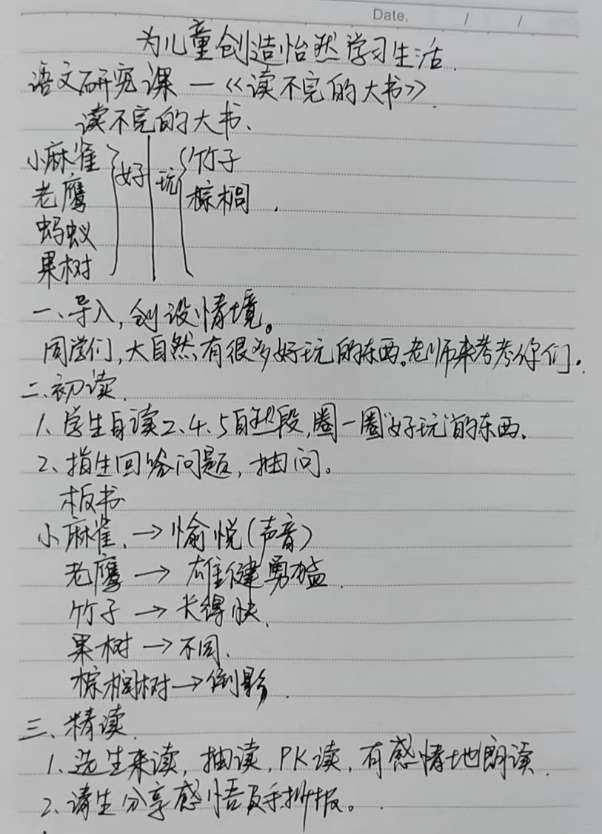 Date. / /
为儿童创造怡然学习生活.
语文研究课—《读不完的大书》.
读不完的大书.
小麻雀 好 玩 竹子
老鹰 棕榈.
蚂蚁
果树
一、导入,创设情境。
同学们,大自然有很多好玩的东西。老师来考考你们。
二、初读.
1.学生自读2.4.5自然段,圈一圈"好玩"的东西.
2.指生回答问题,抽问。
板书
小麻雀.→愉悦(声音)
老鹰→雄健勇猛.
竹子→长得快.
果树→不同.
棕榈树→倒影.
三、精读.
1.选生来读,抽读,PK读,有感情地朗读.
2.请生分享感悟及手抄报。